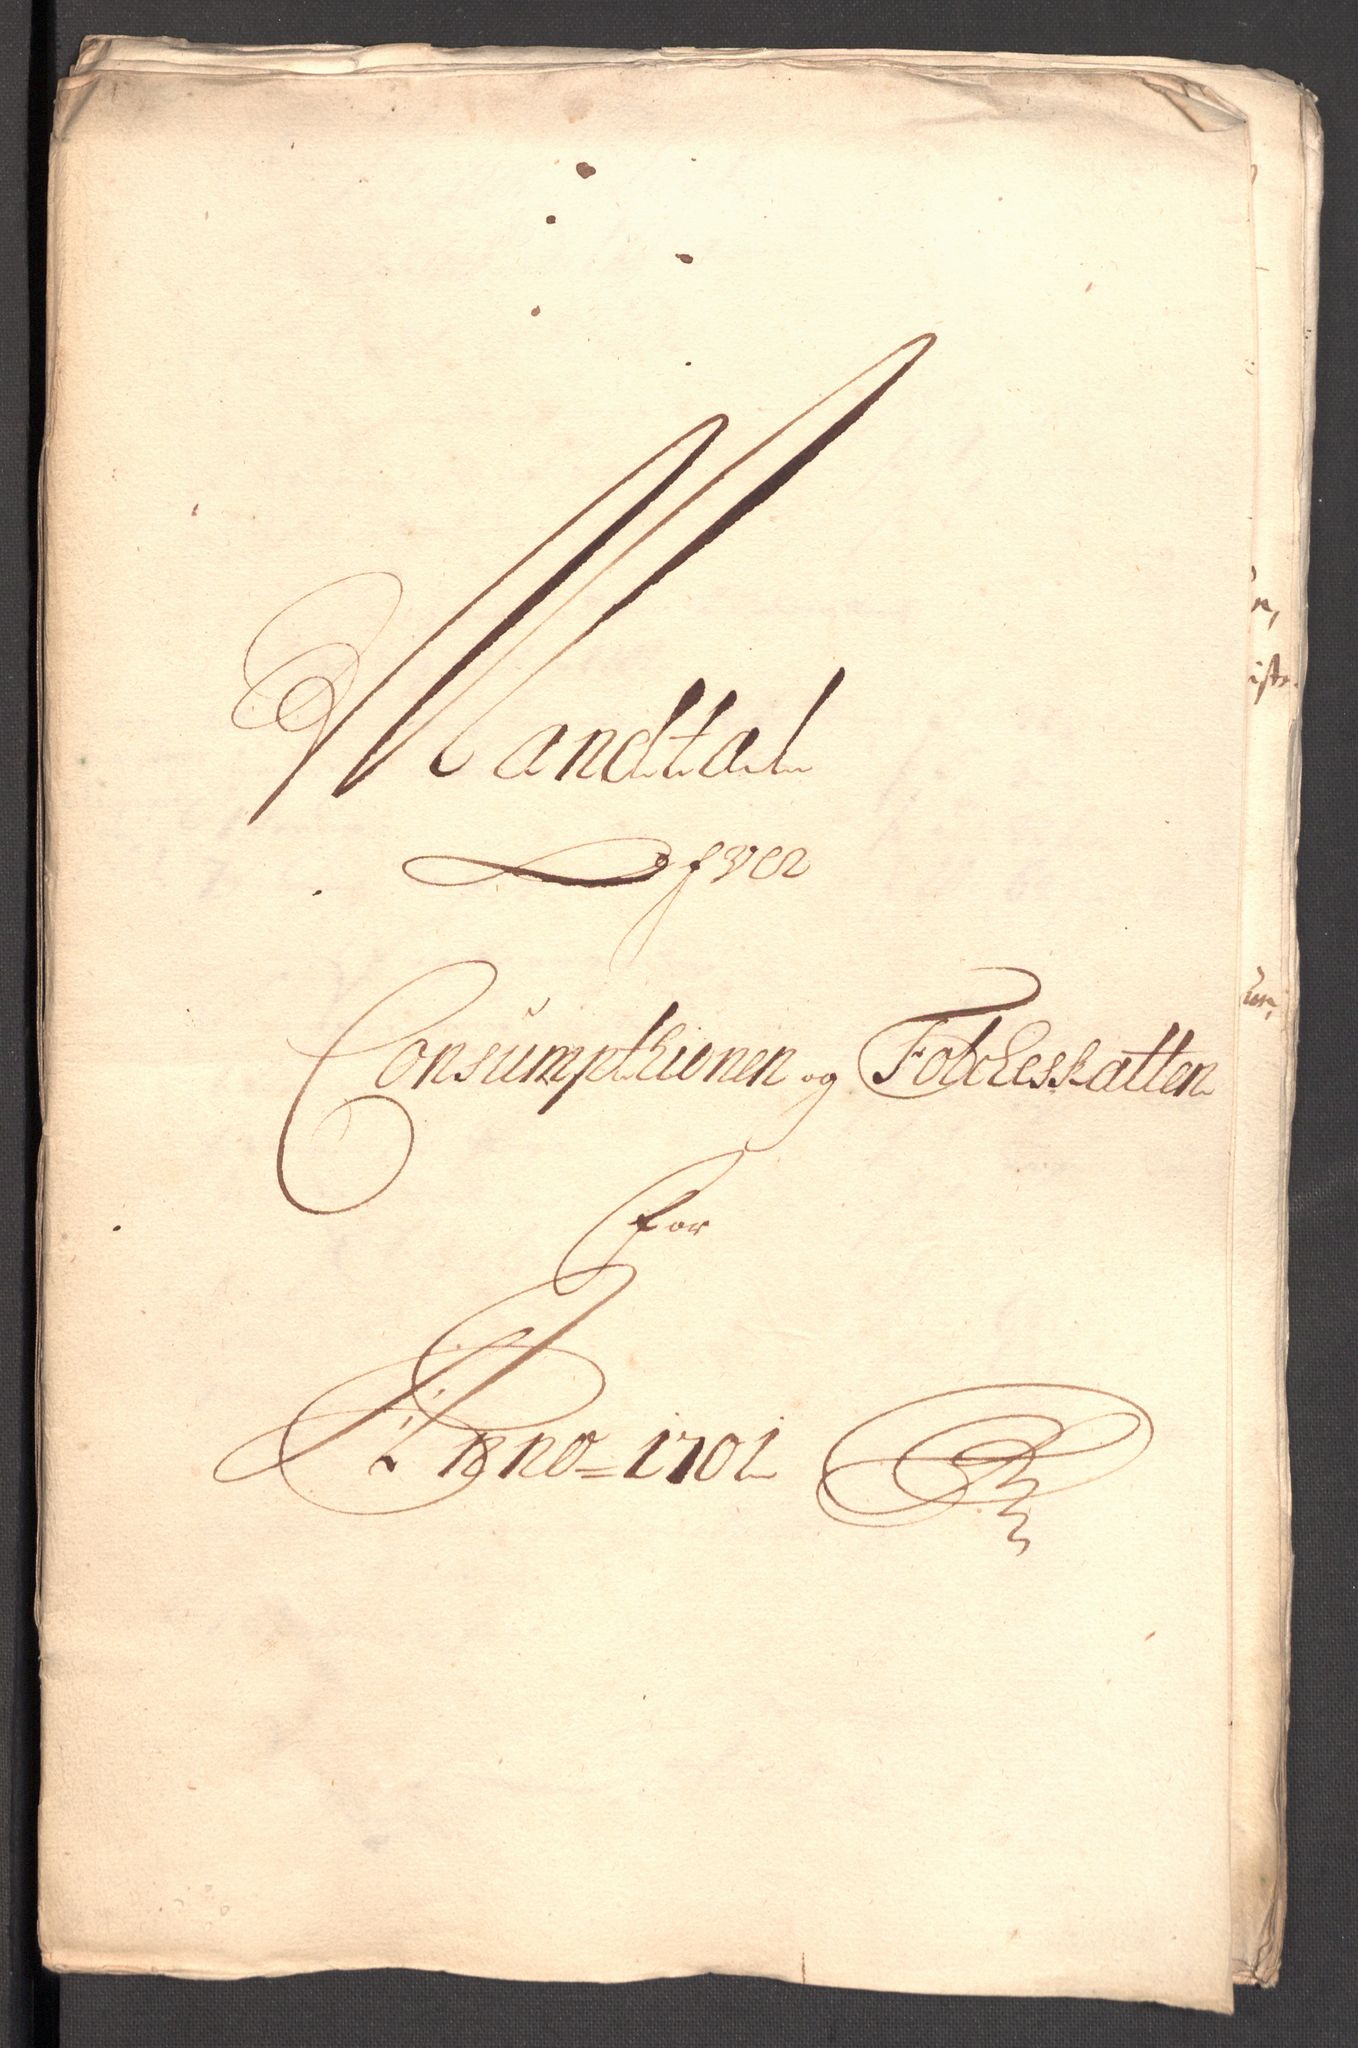 Mandtal
Ofver
Consumptionen og Folckesskatten
for
Anno = 1701